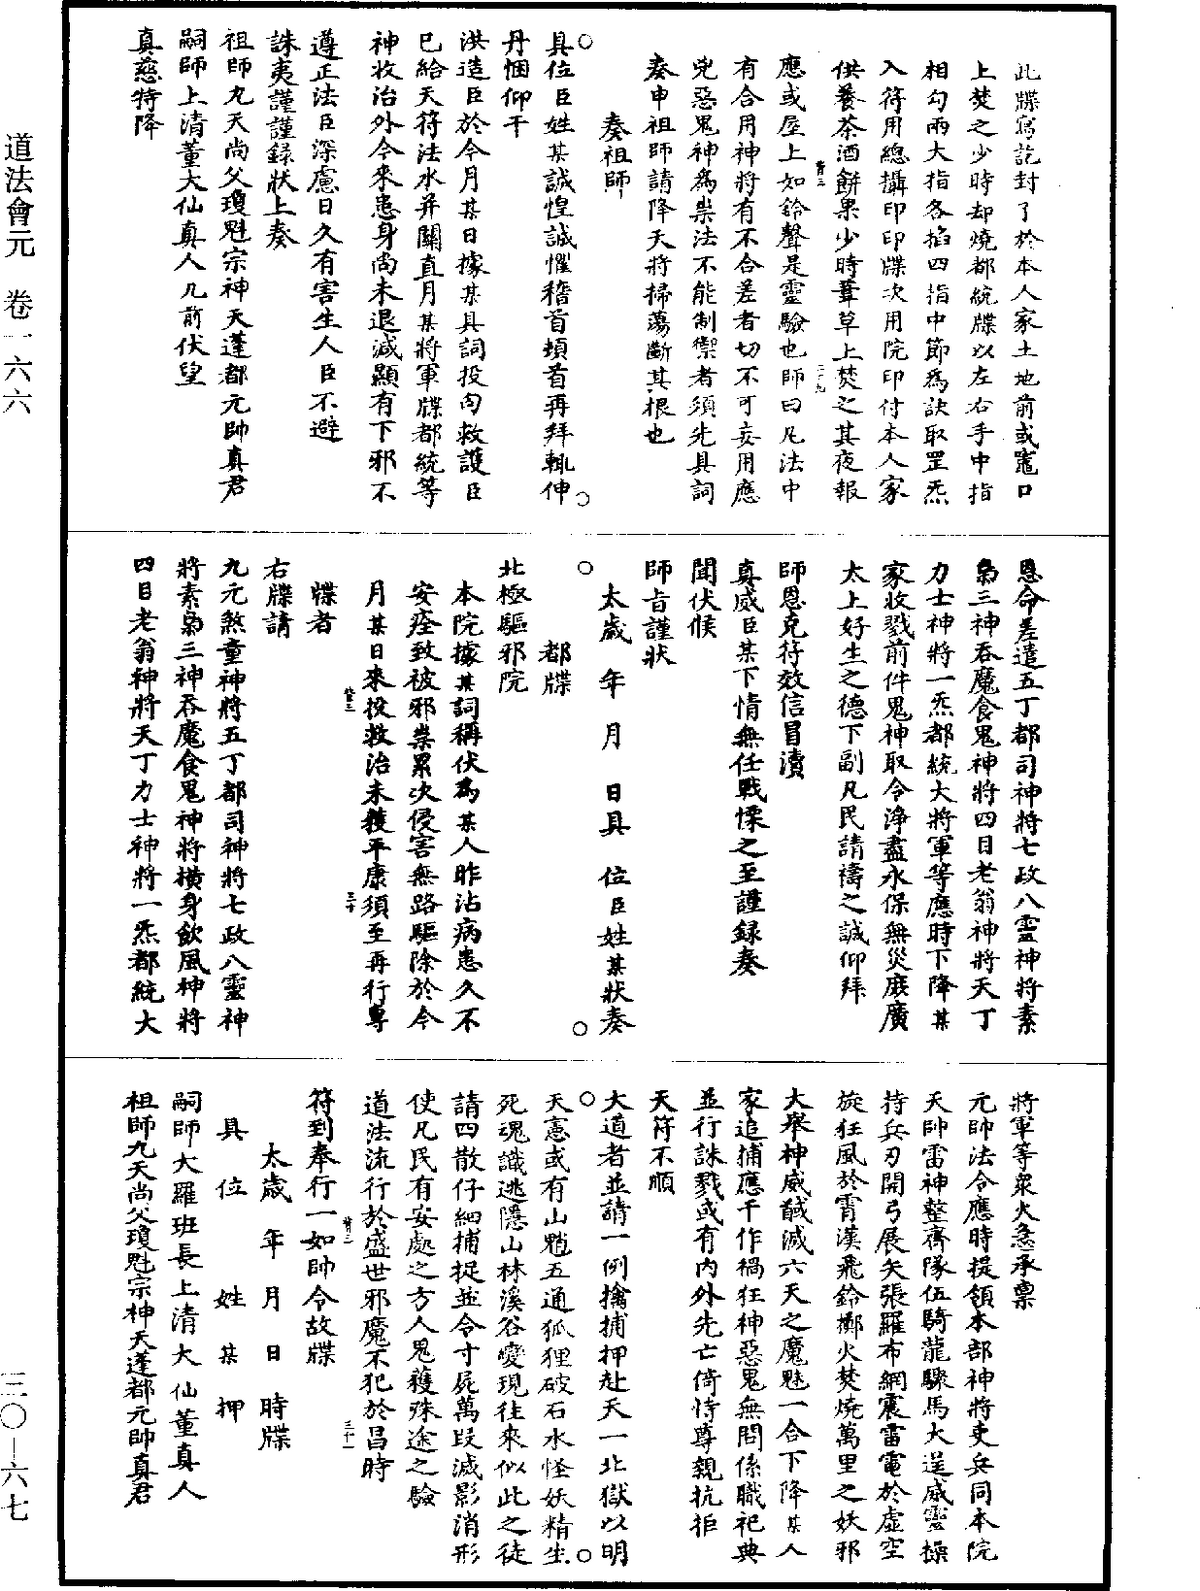 此牒寫訖封了於本人家土地前或竈口
上焚之少時却燒都統牒以左右手中指
相勾兩大指各掐四指中節為訣取罡炁
入符用總攝印印牒次用院印付本人家
供養茶酒餅果少時葦草上焚之其夜報
應或屋上如鈴聲是靈驗也師曰凡法中
有合用神將有不合差者切不可妄用應
兇惡鬼神為祟法不能制禦者須先具詞
奏申祖師請降天將掃蕩斷其根也
奏祖師
具位臣姓某誠惶誠懼稽首頓首再拜輒伸
丹悃仰干
洪造臣於今月某日據某具詞投向救護臣
已給天符法水并關直月某將軍牒都統等
神收治外今來患身尚未退減顯有下邪不
遵正法臣深慮日久有害生人臣不避
誅夷謹謹錄狀上奏
祖師九天尚父瓊魁宗神天蓬都元帥真君
嗣師上清董大仙真人几前伏望
真慈特降
恩命差遣五丁都司神將七政八靈神將素
梟三神吞魔食鬼神將四目老翁神將天丁
力士神將一炁都統大將軍等應時下降某
家收戮前件鬼神取令淨盡永保無災庶廣
太上好生之德下副凡民請禱之誠仰拜
師恩克符效信冒瀆
真威臣某下情無任戰慄之至謹錄奏
聞伏候
師旨謹狀
太歲 年 月 日具 位臣姓某狀奏
都牒
北極驅邪院
本院據某詞稱伏為某人昨沾病患久不
安痊致被邪祟累次侵害無路驅除於今
月某日來投救治未獲平康須至再行專
牒者
右牒請
九元煞童神將五丁都司神將七政八靈神
將素梟三神吞魔食鬼神將橫身飲風神將
四目老翁神將天丁力士神將一炁都統大
將軍等眾火急承稟
元帥法令應時提領本部神將吏兵同本院
天帥雷神整齊隊伍騎龍驟馬大逞威靈操
持兵刃開弓展矢張羅布網震雷電於虛空
旋狂風於霄漢飛鈴擲火焚燒萬里之妖邪
大舉神威馘滅六天之魔魅一合下降某人
家追捕應干作禍狂神惡鬼無問係職祀典
並行誅戮或有內外先亡倚恃尊親抗拒
天符不順
大道者並請一例擒捕押赴天一北獄以明
天憲或有山魈五通狐狸破石水怪妖精生
死魂識逃隱山林溪谷變現往來似此之徒
請四散仔細捕捉並令寸屍萬段滅影消形
使凡民有安處之方人鬼獲殊途之驗
道法流行於盛世邪魔不犯於昌時
符到奉行一如帥令故牒
太歲 年 月 日 時牒
具 位 姓 某 押
嗣師大羅班長上清大仙董真人
祖師九天尚父瓊魁宗神天蓬都元帥真君
道法會元 卷一六六
三〇—六七